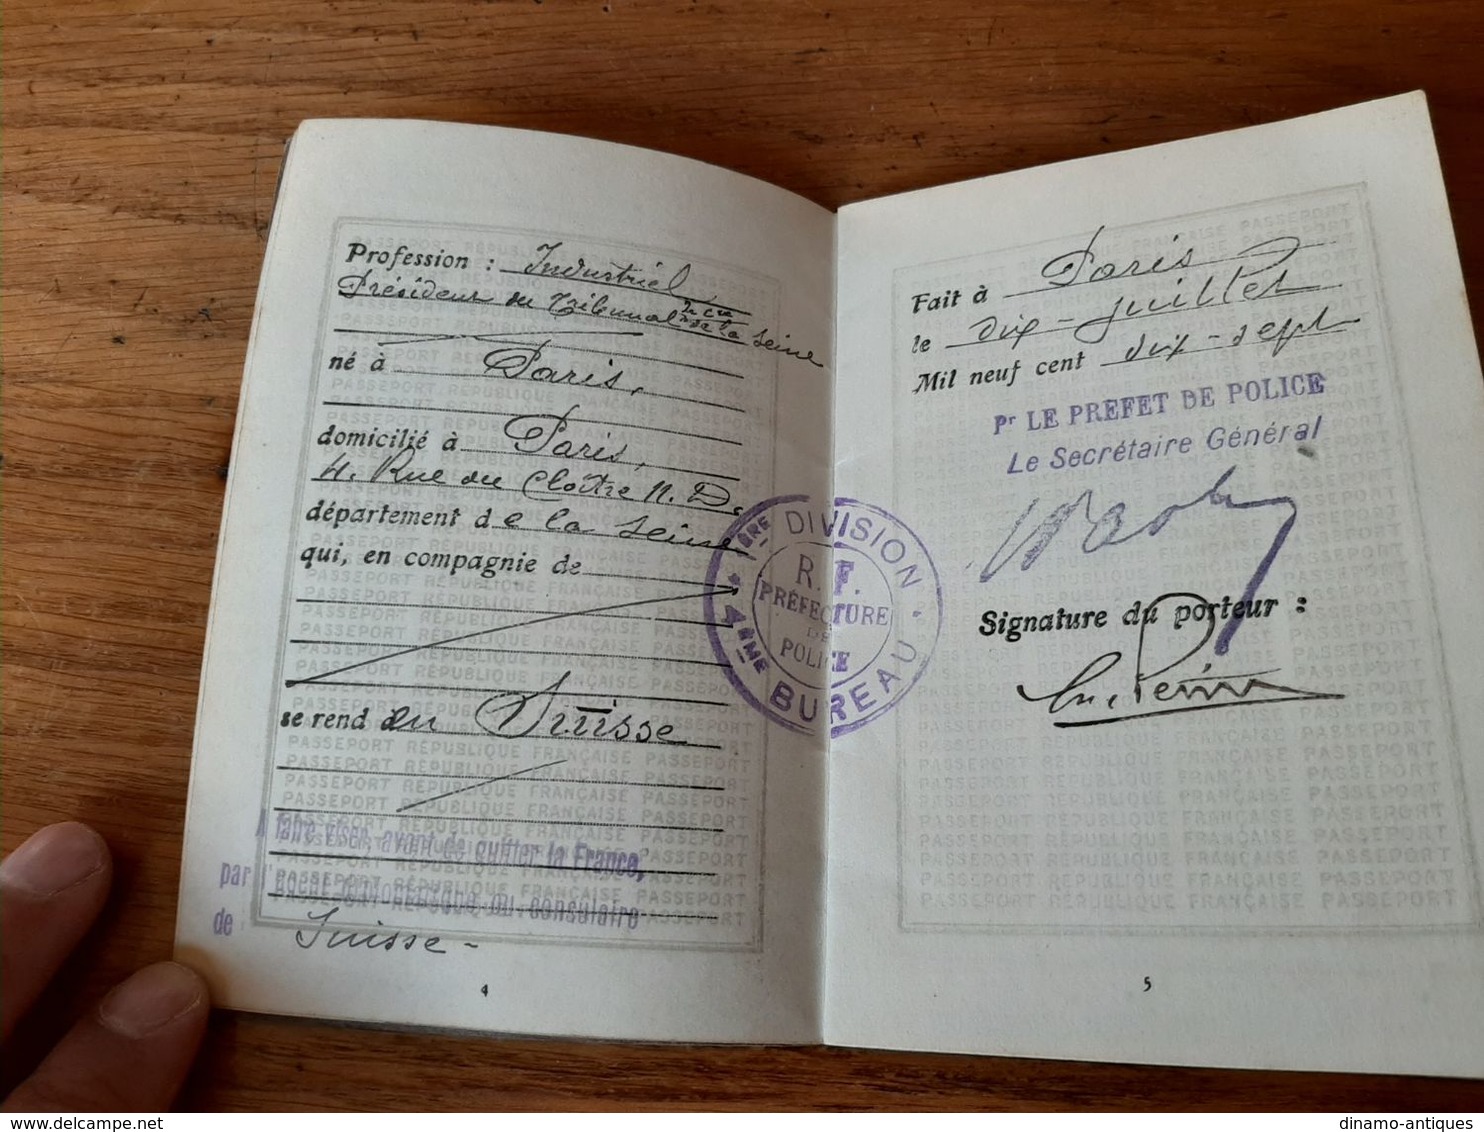 Profession : Industriel,
Président du Tribunal de Cce
de la Seine
né à Paris,
domicilié à Paris,
4. Rue du Cloître N. D.
département de la Seine
qui, en compagnie de
se rend en Suisse
A faire viser avant de quitter la France,
par l'agent diplomatique ou consulaire
de Suisse -
4
1ÈRE DIVISION
* 4ÈME BUREAU *
R. F.
PRÉFECTURE
DE
POLICE
Fait à Paris
le dix-juillet
Mil neuf cent dix-sept
Pr LE PREFET DE POLICE
Le Secrétaire Général
Signature du porteur :
5
PASSEPORT RÉPUBLIQUE FRANÇAISE PASSEPORT
dinamo-antiques